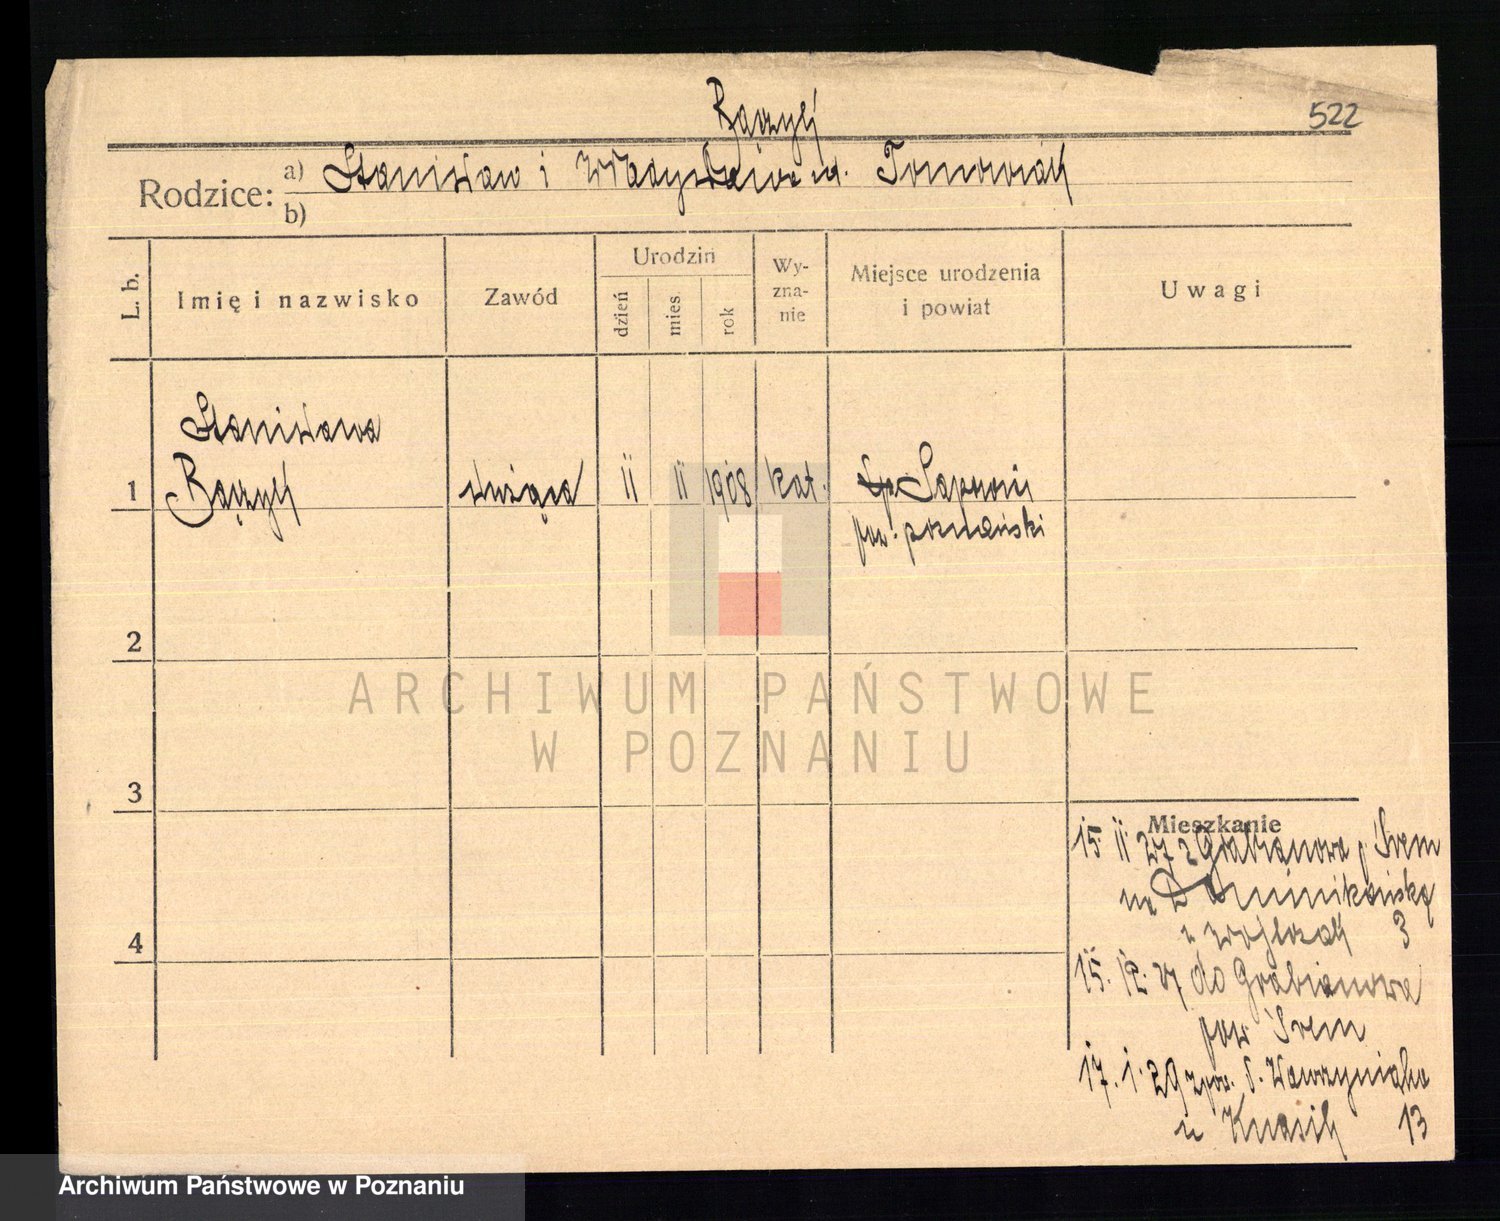 Bączyk
522
Rodzice: a) Stanisław i Władysława u. Tomowiak
b)
L. b.
Imię i nazwisko
Zawód
Urodzin
dzień
mies.
rok
Wy-
zna-
nie
Miejsce urodzenia
i powiat
Uwagi
Stanisława
1 Bączyk służąca 11 11 1908 kat.
pow. poznański
2
3
4
Mieszkanie
15 11 27 z Grabianowa p Śrem
na Dominikańską
u 3
15. 12. 27 do Grabianowa
pow Śrem
17. 1. 29 zpow. Ś. Wawrzyniaka
u 13
ARCHIWUM PAŃSTWOWE
W POZNANIU
Archiwum Państwowe w Poznaniu